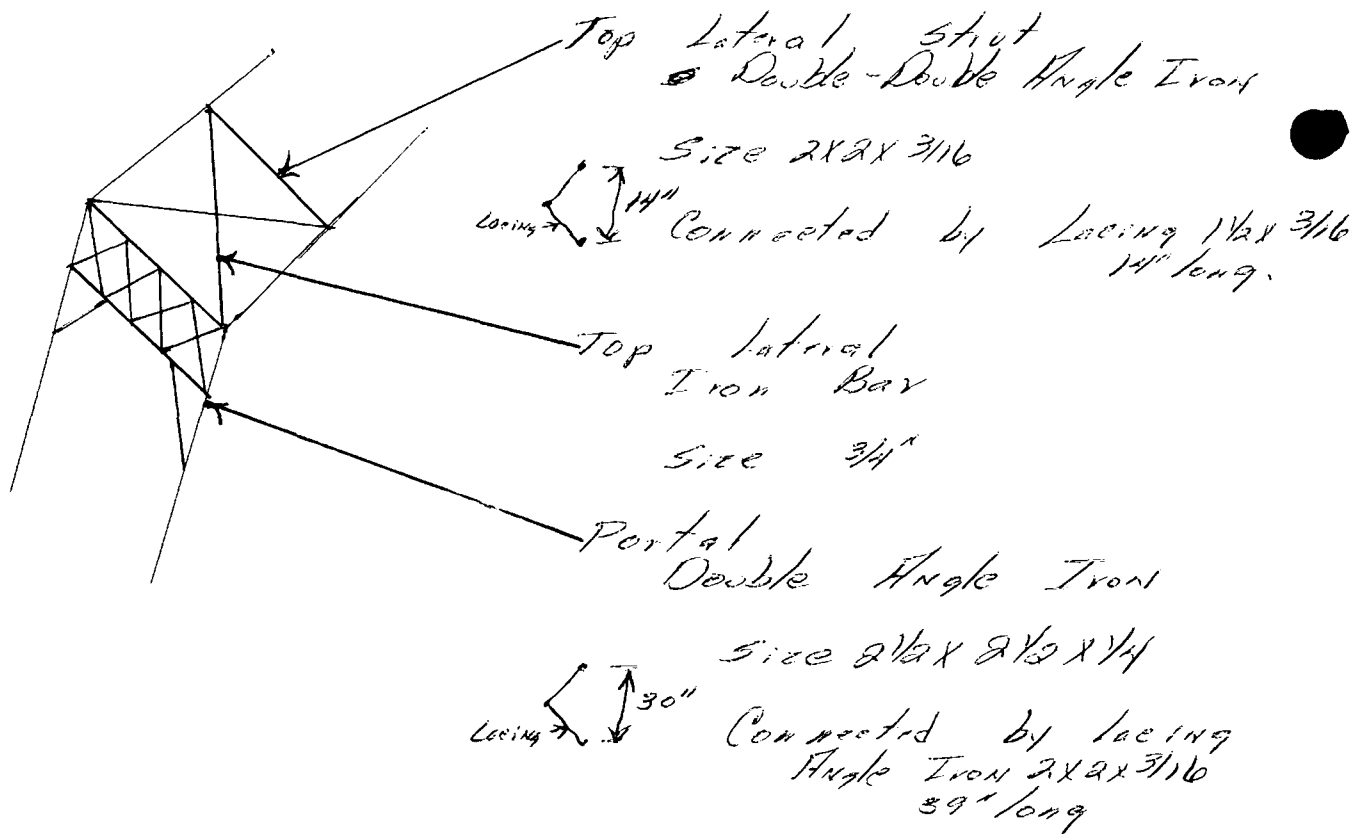 Top Lateral Strut
Double-Double Angle Iron
Size 2X2X 3/16
14"
Lacing
Connected by Lacing 1 1/2 X 3/16
14" long.
Top Lateral
Iron Bar
Size 3/4"
Portal
Double Angle Iron
Size 2 1/2 X 2 1/2 X 1/4
30"
Lacing
Connected by lacing
Angle Iron 2X2X3/16
39" long